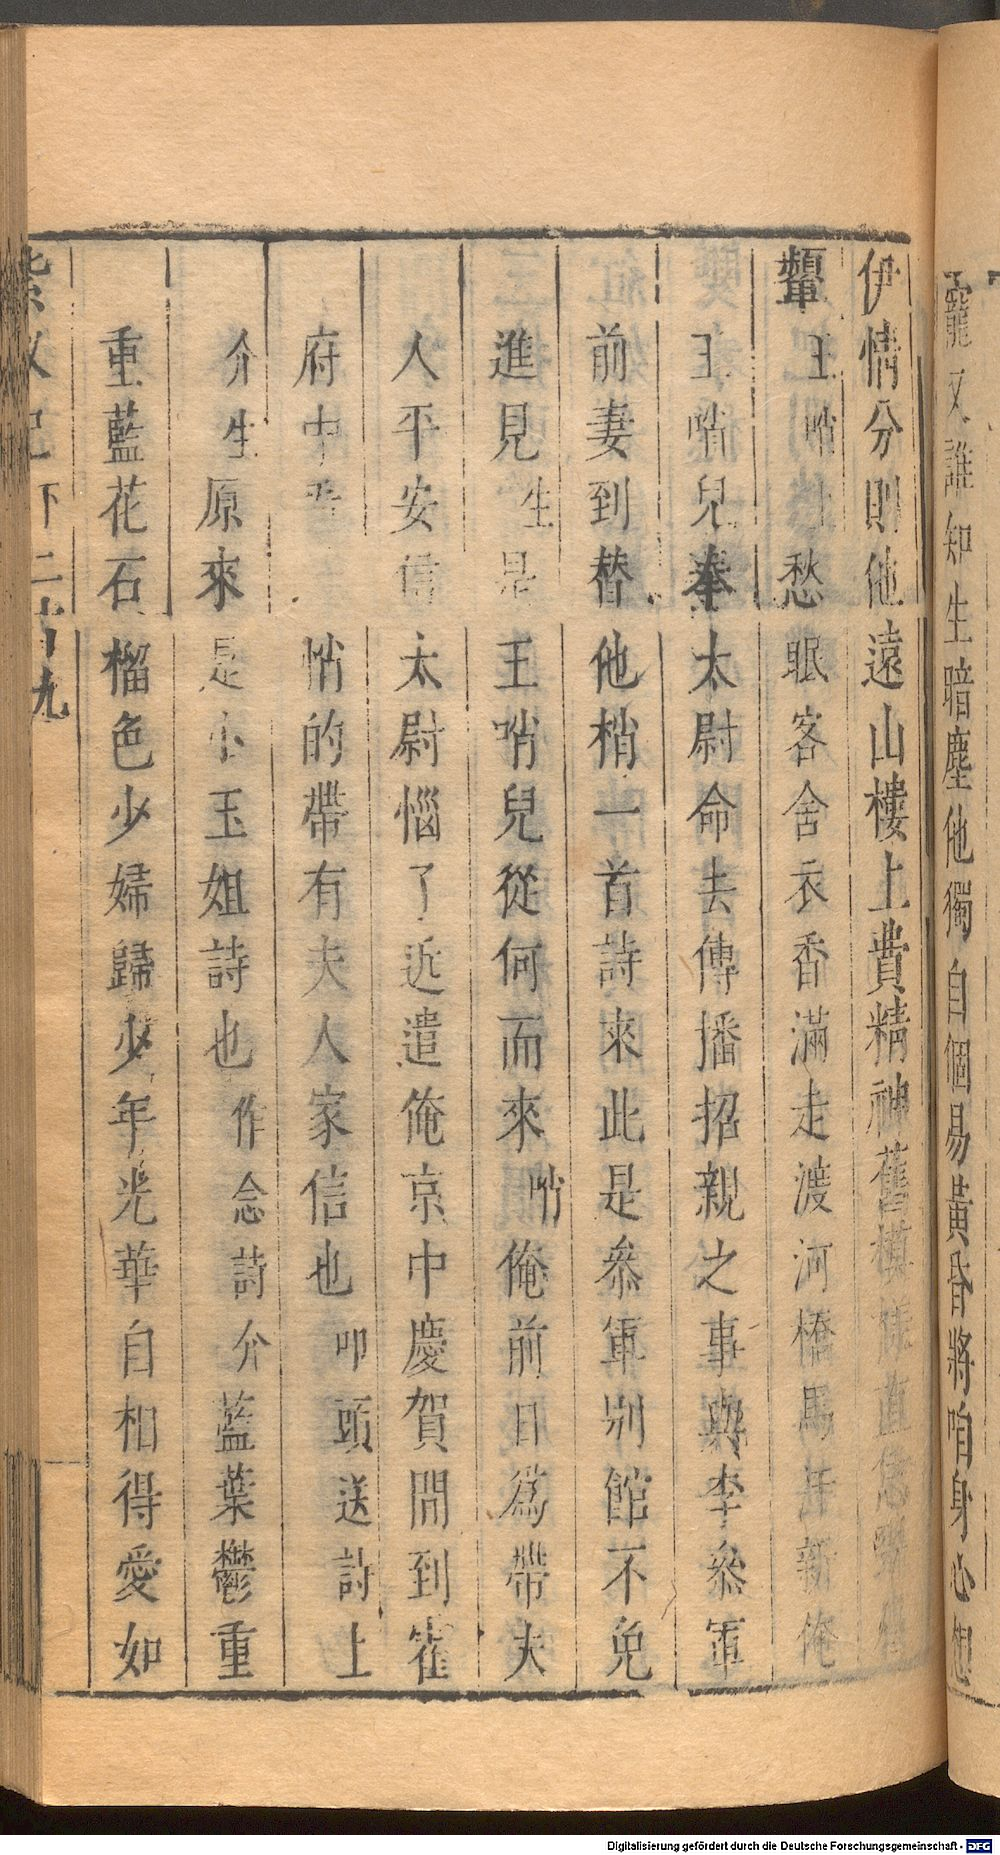 寵又誰知生暗塵他獨自個易黃昏將咱身心想
伊情分則他遠山樓上費精神舊模樣直恁
顰
王哨上愁眠客舍衣香滿走渡河橋馬新俺
王哨兒奉太尉命去傳播招親之事與李叅軍
前妻到替他梢一首詩來此是叅軍别館不免
進見生是王哨兒從何而來哨俺前日爲帶夫
人平安信太尉惱了近遣俺京中慶賀間到崔
府中悄的帶有夫人家信也叩頭送詩上
介生原來是小玉姐詩也作念詩介藍葉鬱重
重藍花石榴色少婦歸少年光華自相得愛如
下二十九
Digitalisierung gefördert durch die Deutsche Forschungsgemeinschaft - DFG